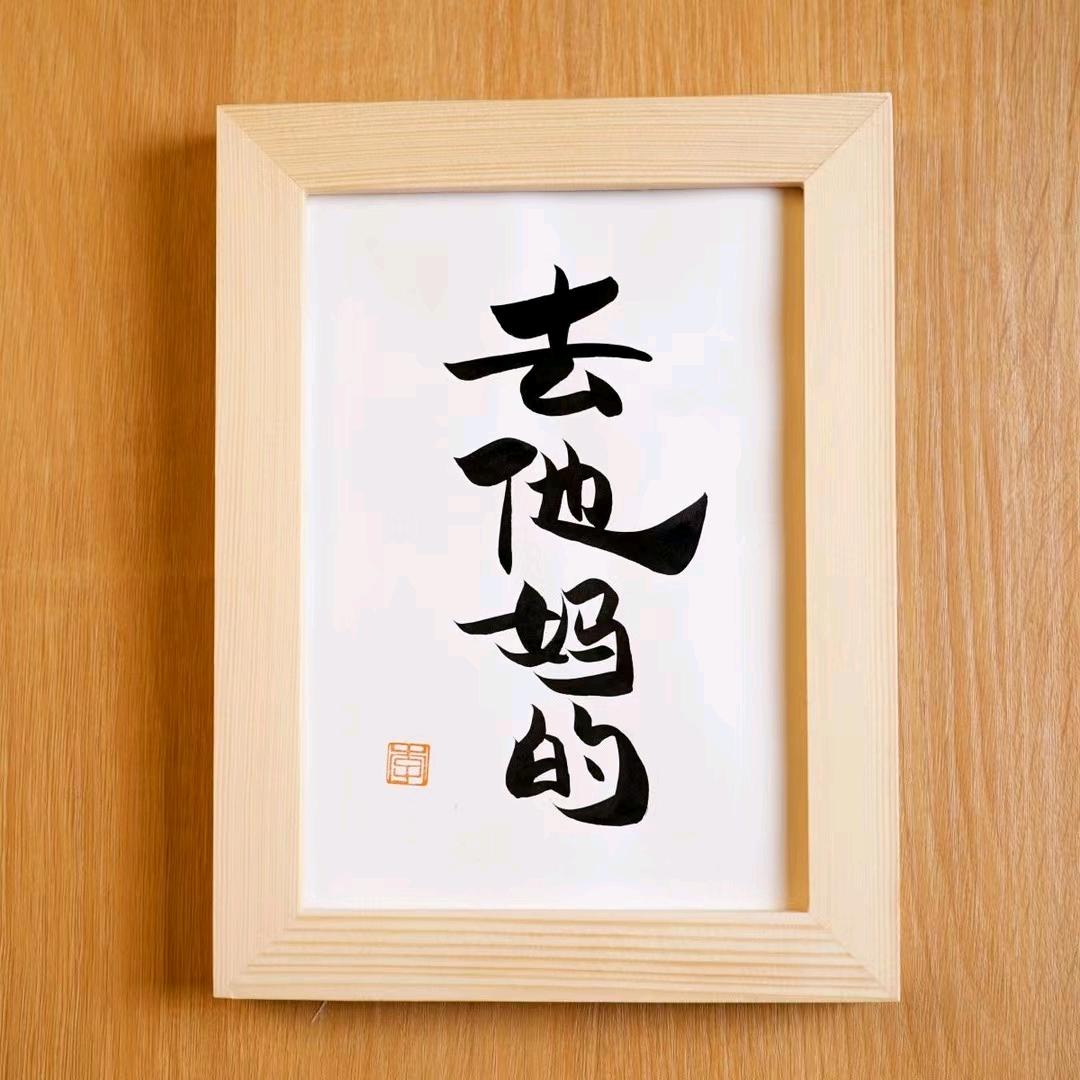 去他妈的